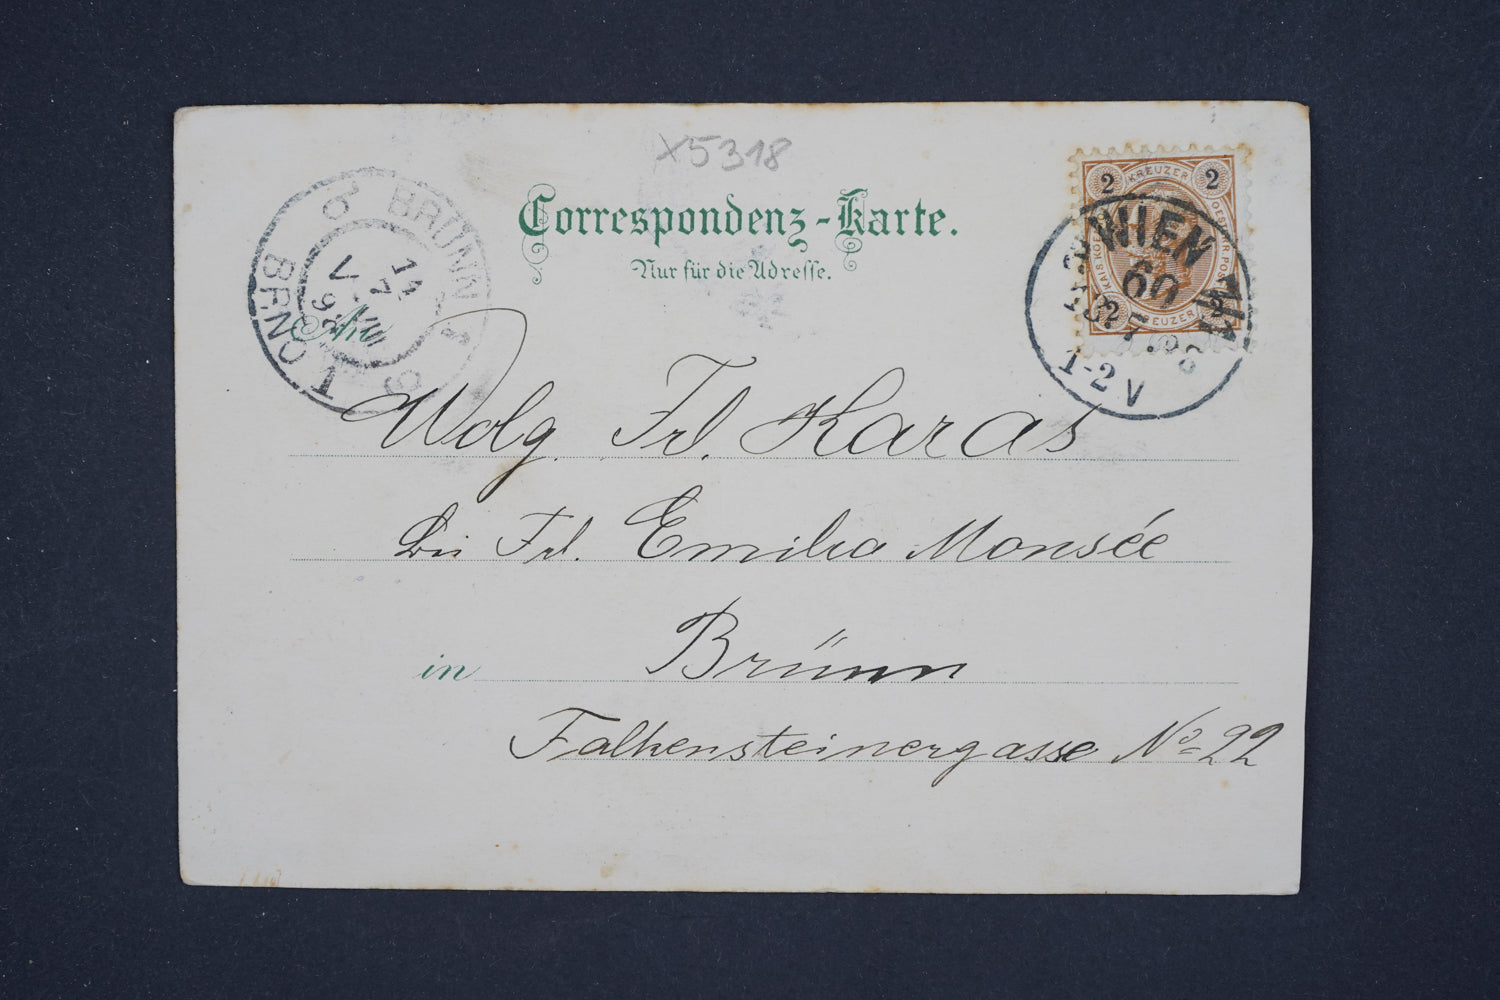 X5318
Correspondenz-Karte.
Nur für die Adresse.
2 KREUZER 2
WIEN
60
1-2 V
BRÜNN 1
BRNO 1
Wolg. Frl. Karas
bei Frl. Emilia Monsée
in Brünn
Falkensteinergasse No 22